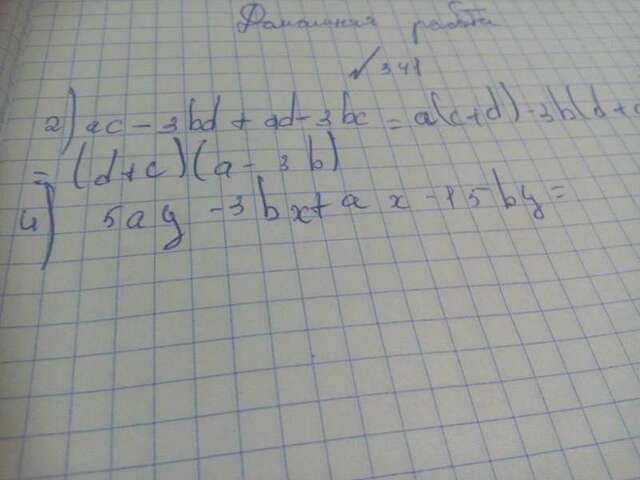 Домашняя работа
√ 341
2) ac - 3bd + ad - 3bc = a(c+d) - 3b(d+c
= (d+c)(a - 3b)
4) 5ay - 3bx + ax - 15by =